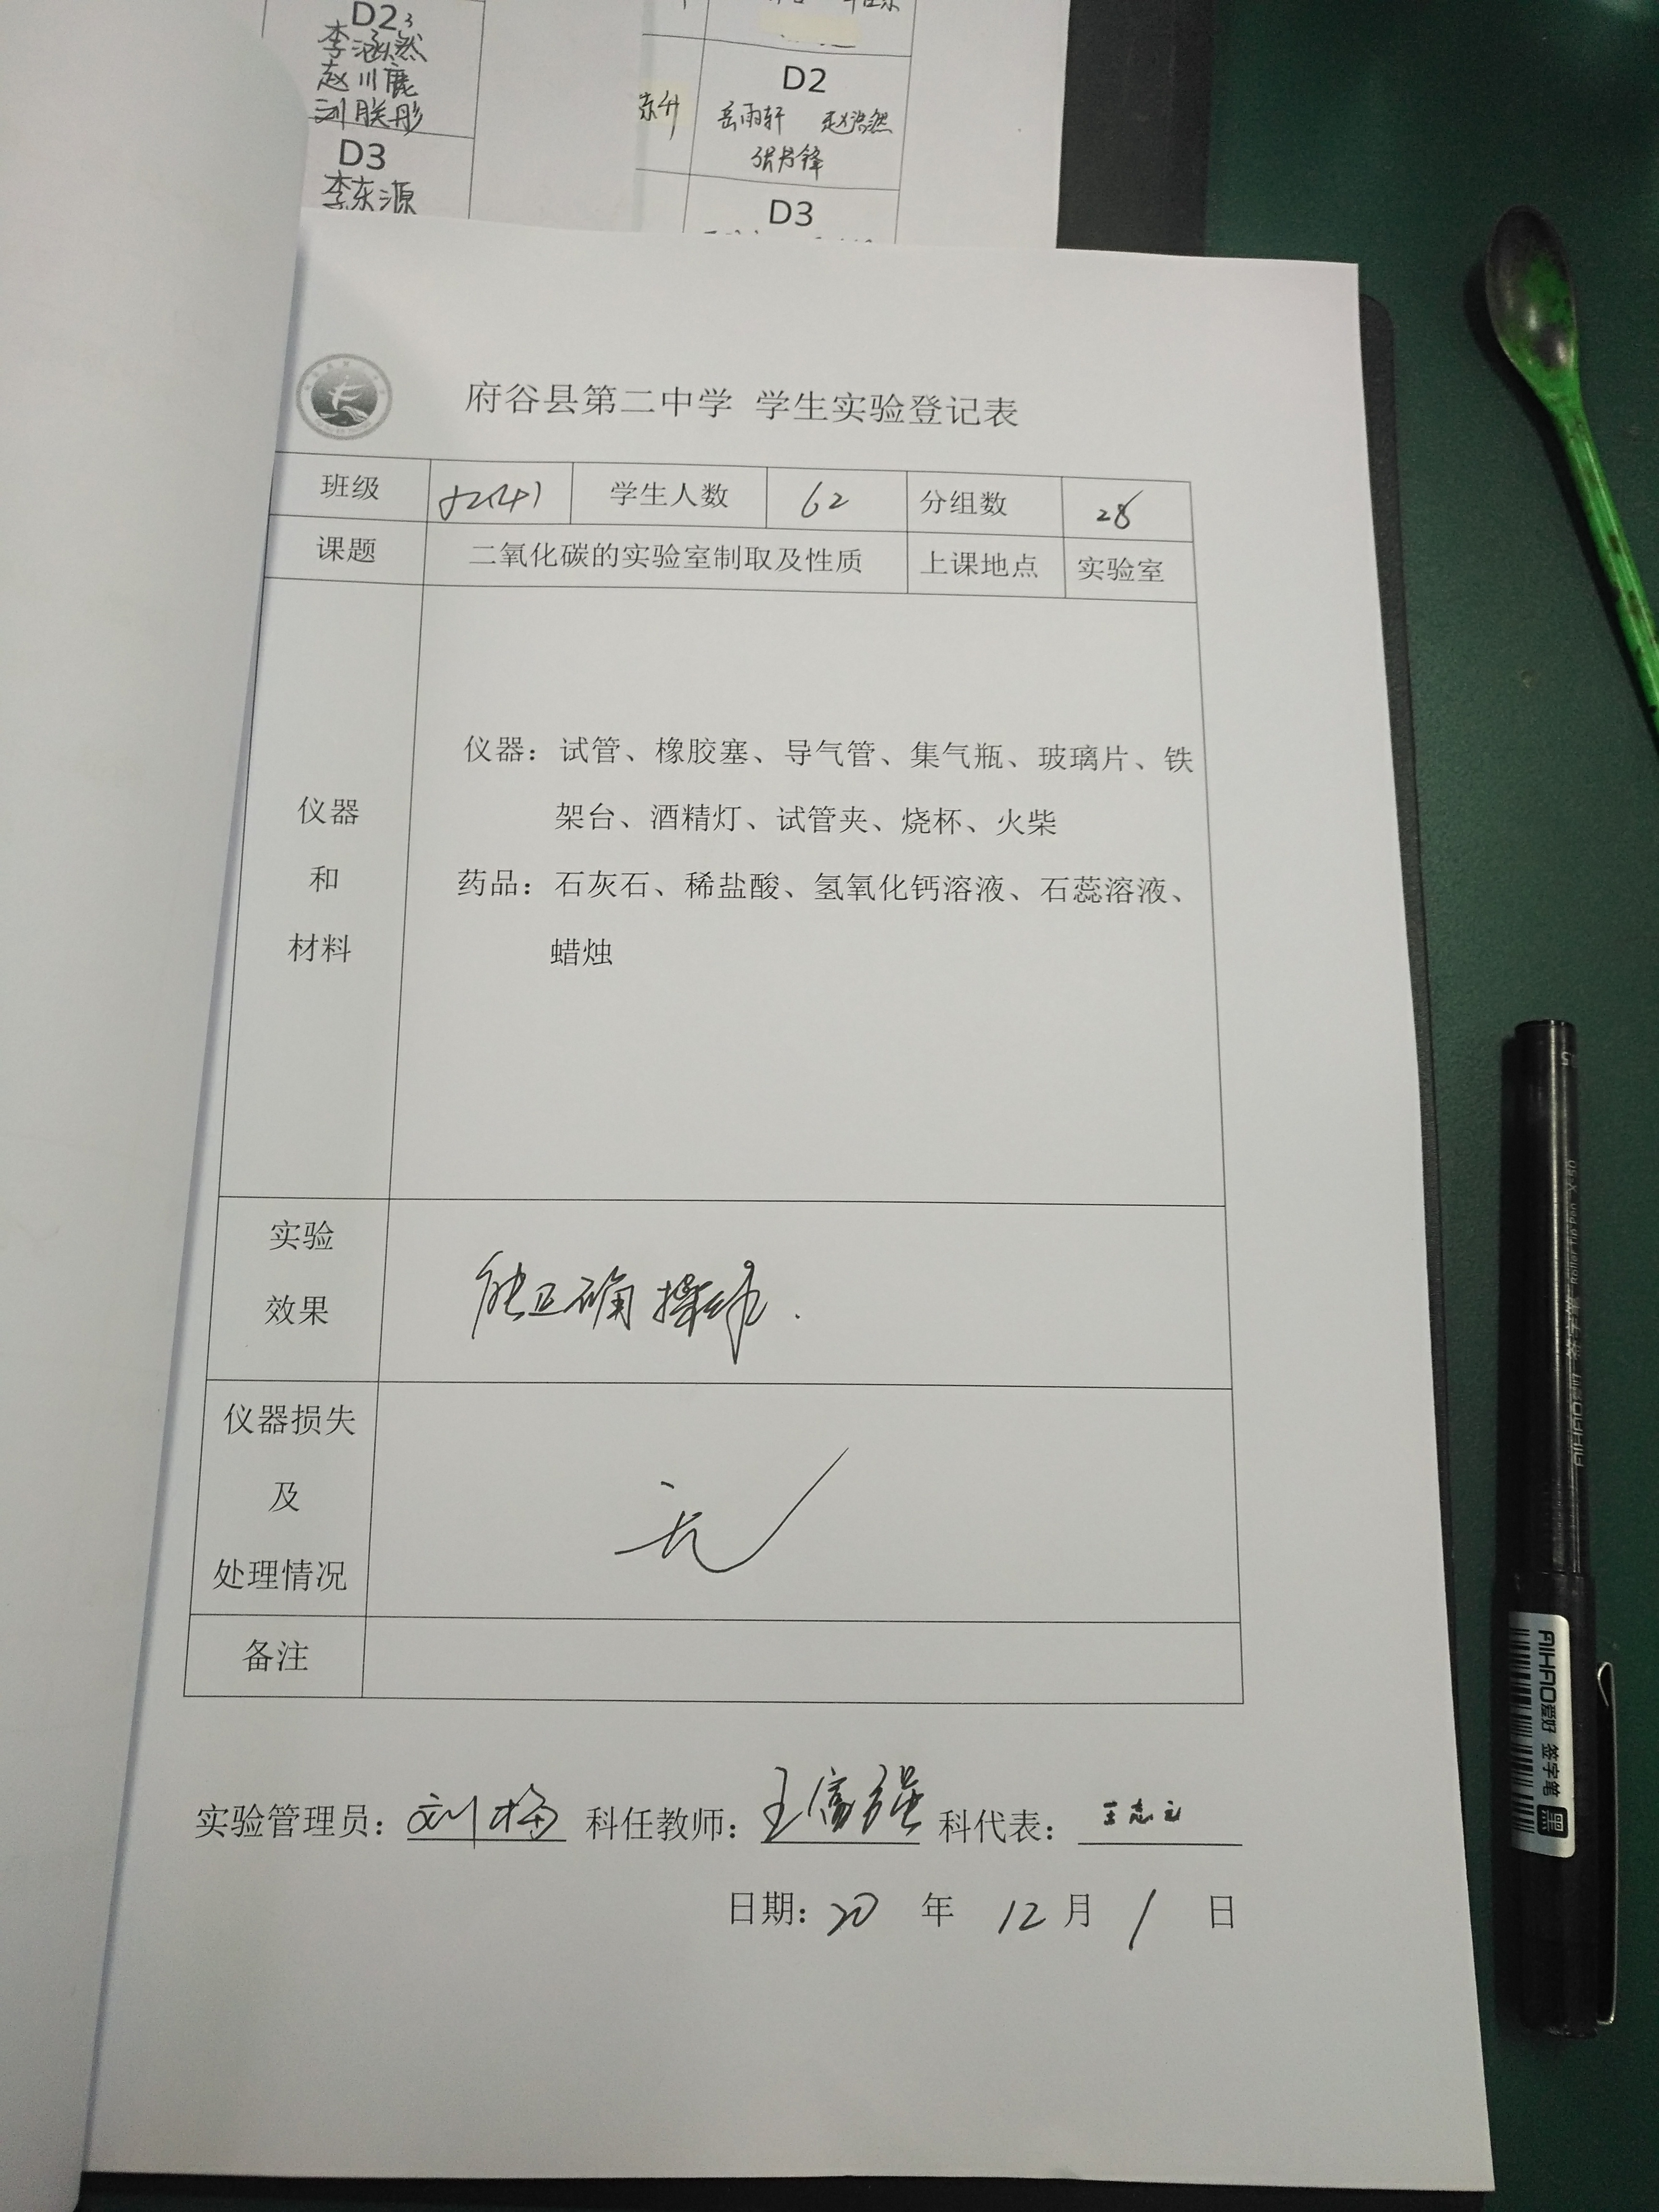 D2
李涵然
赵川鹿
刘朕彤
D3
李东源
东升
D2
岳雨轩 赵浩然
D3
府谷县第二中学 学生实验登记表
班级 学生人数 62 分组数 28
课题 二氧化碳的实验室制取及性质 上课地点 实验室
仪器
和
材料
仪器：试管、橡胶塞、导气管、集气瓶、玻璃片、铁
架台、酒精灯、试管夹、烧杯、火柴
药品：石灰石、稀盐酸、氢氧化钙溶液、石蕊溶液、
蜡烛
实验
效果
能正确操作.
仪器损失
及
处理情况
无
备注
实验管理员：刘梅 科任教师：王富强 科代表：王志立
日期：20 年 12 月 1 日
AIHAO爱好 签字笔 黑